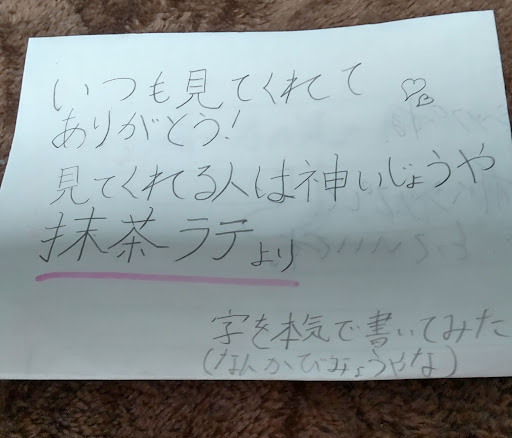 いつも見てくれてて
ありがとう!
見てくれてる人は神いじょうや
抹茶ラテより
字を本気で書いてみた
(なんかびみょうやな)